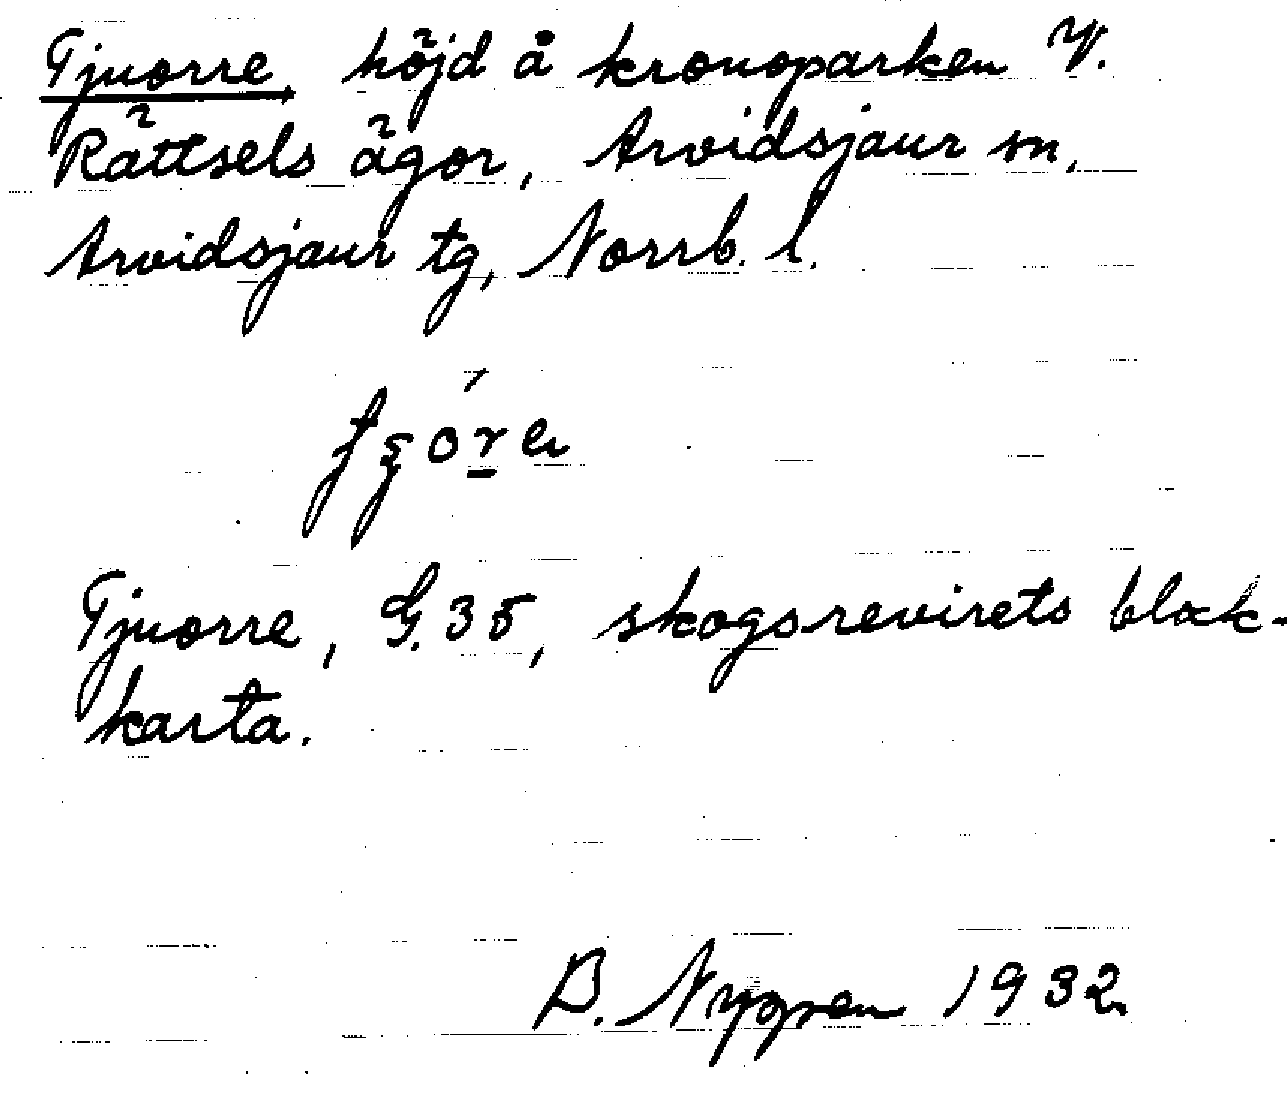 Tjuorre, höjd å kronoparken V.
Rättsels ägor, Arvidsjaur sn,
Arvidsjaur tg, Norrb. l.
Tjuorre, G.35, skogsrevirets block-
karta.
B. Nygren 1932